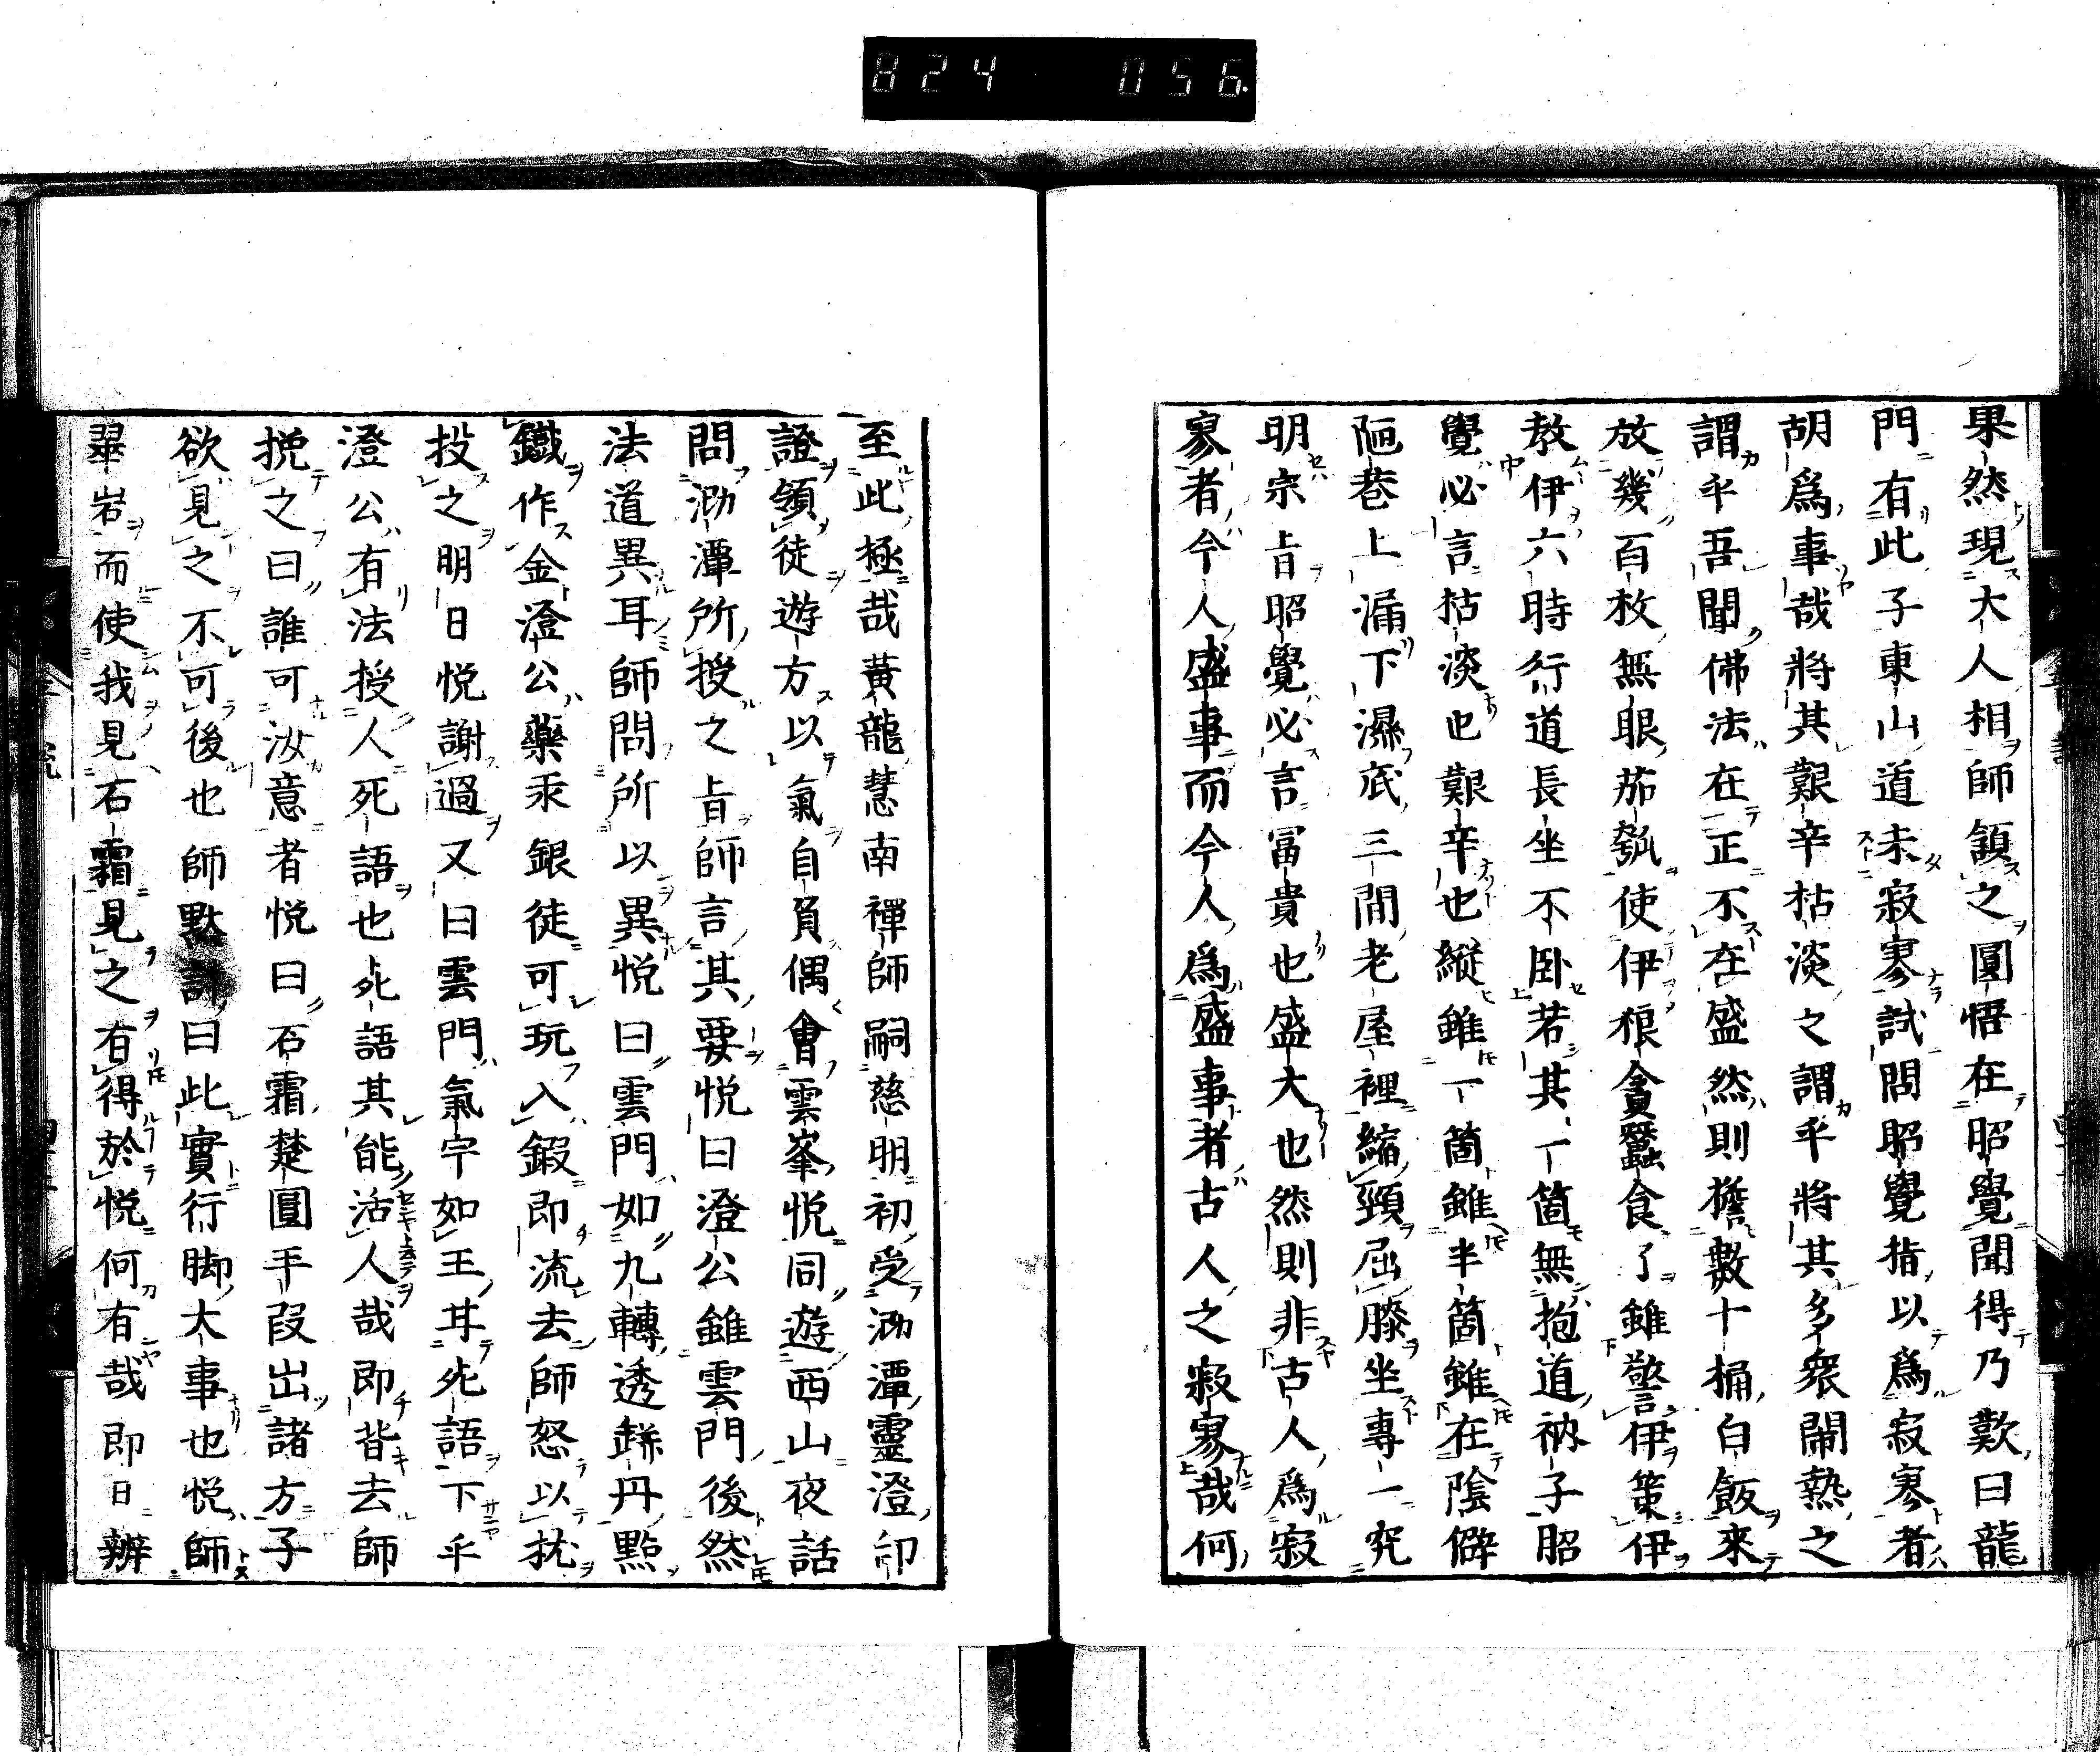 824 056
果然現大人相師頷之圓悟在昭覺聞得乃歎曰龍
門有此子東山道未寂寥試問昭覺指以爲寂寥者
胡爲事哉將其艱辛枯淡之謂乎將其多衆鬧熱之
謂乎吾聞佛法在正不在盛然則擔數十桶白飯來
放幾百枚無眼茄瓠使伊狼貪蠶食了雖警伊策伊
教伊六時行道長坐不臥若其一箇無抱道衲子昭
覺必言枯淡也艱辛也縱雖一箇雖半箇雖在陰僻
陋巷上漏下濕底三間老屋裡縮頸屈膝坐專一究
明宗旨昭覺必言富貴也盛大也然則非古人爲寂
寥者今人盛事而今人爲盛事者古人之寂寥哉何
至此極哉黃龍慧南禪師嗣慈明初受泐潭靈澄印
證領徒遊方以氣自負偶會雲峯悅同遊西山夜話
問泐潭所授之旨師言其要悅曰澄公雖雲門後然
法道異耳師問所以異悅曰雲門如九轉透鎽丹點
鐵作金澄公藥汞銀徒可玩入鍜即流去師怒以枕
投之明日悅謝過又曰雲門氣宇如王甘死語下乎
澄公有法授人死語也死語其能活人哉即背去師
挽之曰誰可汝意者悅曰石霜楚圓手段出諸方子
欲見之不可後也師默計曰此實行脚大事也悅師
翠岩而使我見石霜見之有得於悅何有哉即日辨